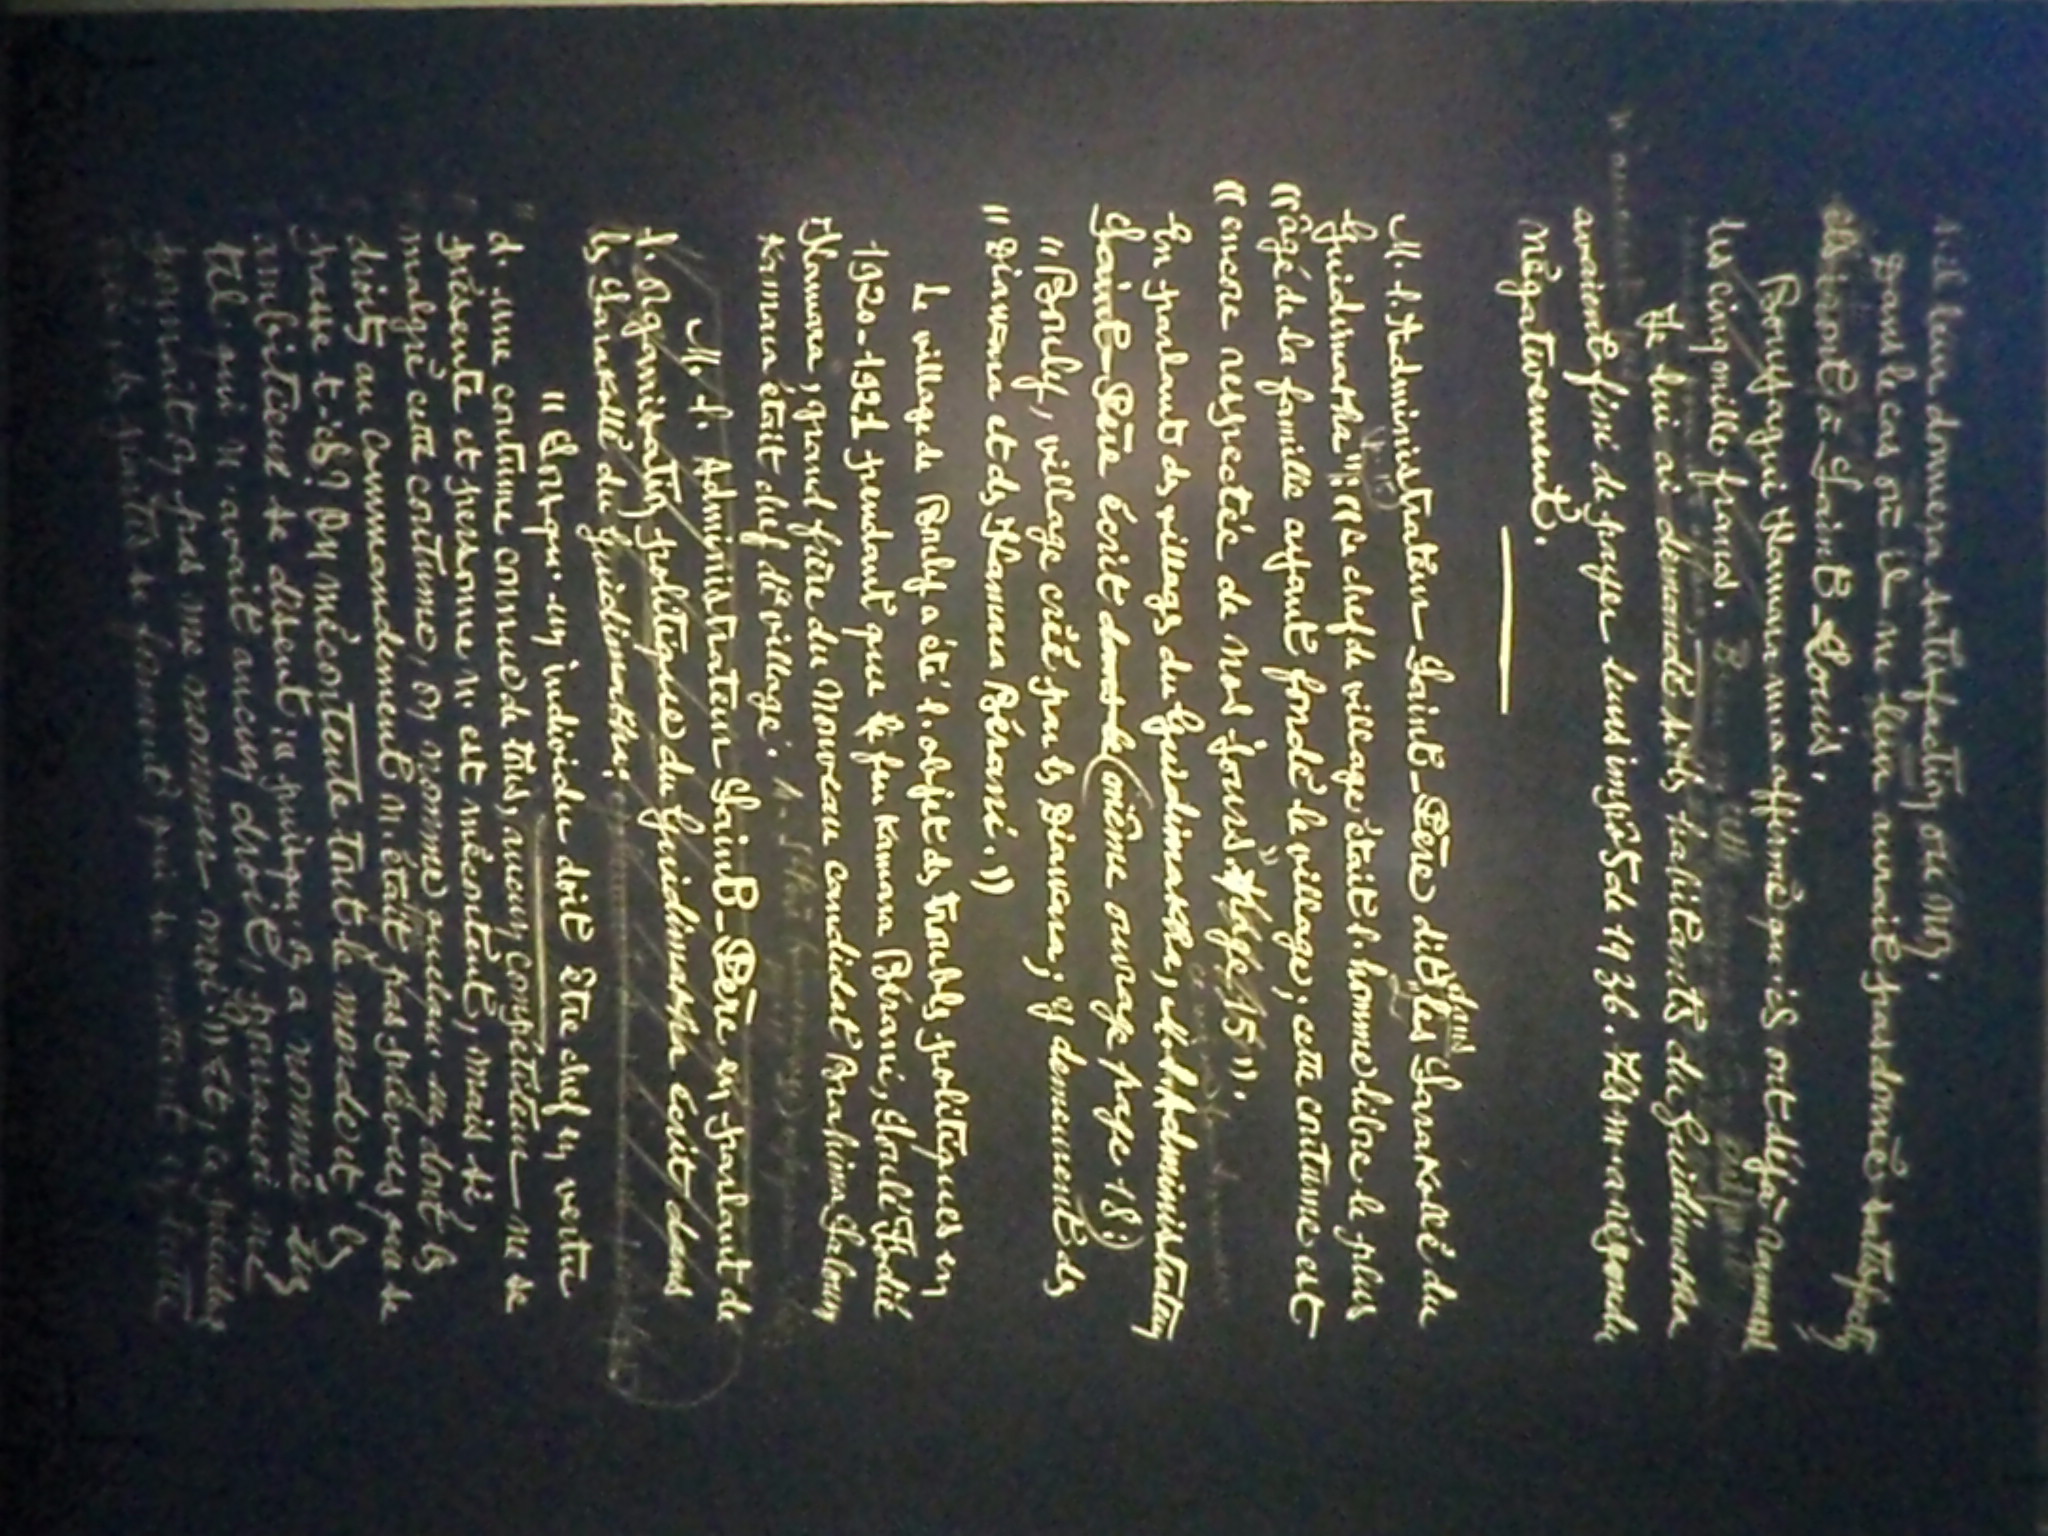 s'il leur donnera satisfaction ou non.
Dans le cas où il ne leur aurait pas donné satisfaction
ils iront à Saint-Louis.
Bouyagui Hamar m'a affirmé qu'ils ont déjà ramassé
les cinq mille francs.
Je lui ai demandé si les habitants du Guidimakha
avaient fini de payer leurs impôts de 1936. Ils m'a répondu
négativement.
M. l'Administrateur Saint-Père dit dans les Sarakolé du
Guidimakha": "le chef de village était l'homme libre le plus
"âgé de la famille ayant fondé le village; cette coutume est
"encore respectée de nos jours" Page 15".
En parlant des villages du Guidimakha, M. l'Administrateur
Saint-Père écrit (même ouvrage page 18:)
"Bouly, village créé par les Diawara; y demeurent des
"Diawara et des Kamara Bérani.))
Le village de Bouly a été l'objet des troubles politiques en
1920-1921 pendant que le feu Kamara Bérani, Souleÿ Hadié
Kamara, grand frère du nouveau candidat Brahima Galoun
Kamara était chef de village.
M. l'Administrateur Saint-Père en parlant de
l'organisation politique du Guidimakha écrit dans
les Sarakollé du Guidimakha:
"Lorsqu'un individu doit être chef en vertu
d'une coutume connue de tous, aucun compétiteur ne se
présente et personne n'est mécontent, mais si
malgré cette coutume, on nomme quelqu'un dont les
droits au commandement n'étaient pas prévus par la
on mécontente tout le monde et les
ambitieux se disent: "puisqu'on a nommé un
tel qui n'avait aucun droit, pourquoi ne
pas me nommer moi"; et,